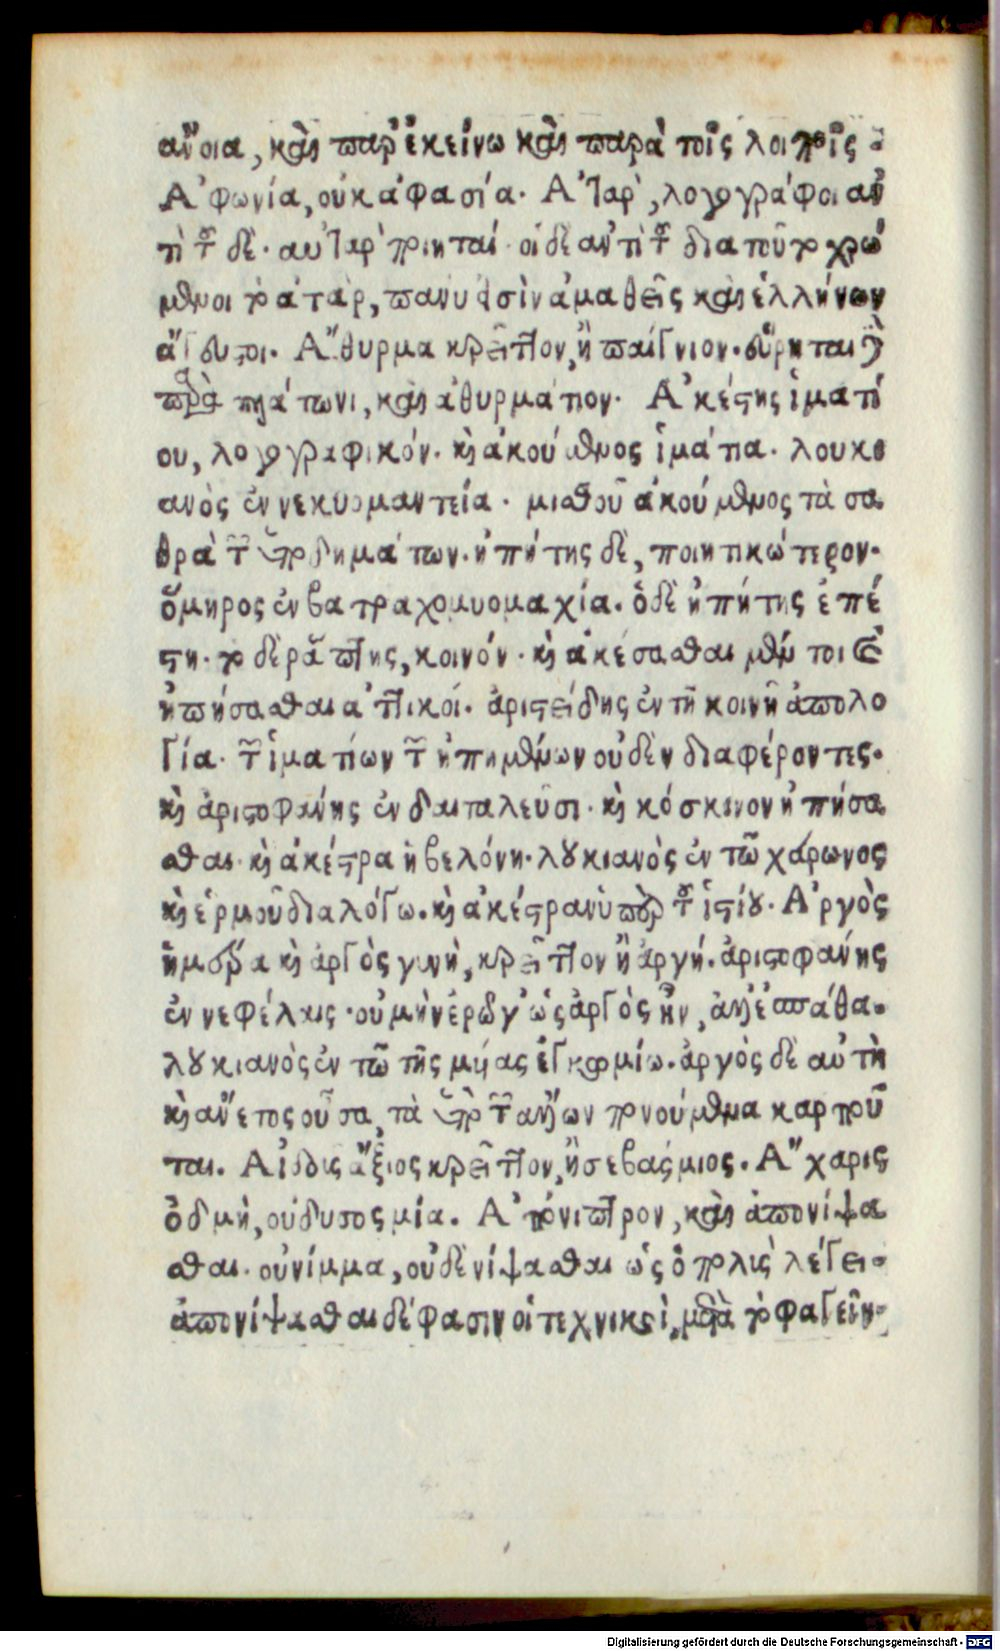 ἄνοια, καὶ παρ' ἐκείνω καὶ παρὰ τοῖς λοιποῖς :
Ἀφωνία, οὐκ ἀφασία. Ἀτὰρ, λογογράφοι ἀν
τὶ τοῦ δέ. αὐτὰρ ποιηταί. οἱ δὲ ἀντὶ τοῦ διὰ τοῦτο χρώ
μενοι τὸ ἀτὰρ, πάνυ εἰσὶν ἀμαθεῖς καὶ ἑλλήνων
ἄγευστοι. Ἄθυρμα κρεῖττον, ἢ παίγνιον. εὕρηται δὲ
παρὰ πλάτωνι, καὶ ἀθυρμάτιον. Ἀκέστης ἱματί
ου, λογογραφικόν. καὶ ἀκούμενος ἱμάτια. λουκι
ανὸς ἐν νεκυομαντεία. μισθοῦ ἀκούμενος τὰ σα
θρὰ τῶν ὑποδημάτων. ἠπήτης δὲ, ποιητικώτερον.
ὅμηρος ἐν βατραχομυομαχία. ὁ δὲ ἠπήτης ἐπέ
στη. τὸ δὲ ῥάπτης, κοινόν. καὶ ἀκέσασθαι μέν τοι καὶ
ἠπήσασθαι ἀττικοί. ἀριστείδης ἐν τῆ κοινῆ ἀπολο
γία. τῶν ἱματίων τῶν ἠπημένων οὐδὲν διαφέροντες.
καὶ ἀριστοφάνης ἐν δαιταλεῦσι. καὶ κόσκινον ἠπήσα
σθαι. καὶ ἀκέστρα ἡ βελόνη. λουκιανὸς ἐν τῶ χάρωνος
καὶ ἑρμοῦ διαλόγω. καὶ ἀκέστραν ὑπὲρ τοῦ ἱστίου. Ἀργὸς
ἡμέρα καὶ ἀργὸς γυνὴ, κρεῖττον ἢ ἀργή. ἀριστοφάνης
ἐν νεφέλαις. οὐ μὴν ἐρῶ γ' ὡς ἀργὸς ἦν, ἀλλ' ἐσπάθα.
λουκιανὸς ἐν τῶ τῆς μυίας ἐγκωμίω. ἀργὸς δὲ αὐτὴ
καὶ ἄνετος οὖσα, τὰ ὑπὸ τῶν ἄλλων πονούμενα καρποῦ
ται. Αἰδοῦς ἄξιος κρεῖττον, ἢ σεβάσμιος. Ἄχαρις
ὀδμὴ, οὐ δυσοσμία. Ἀπόνιπτρον, καὶ ἀπονίψα
σθαι. οὐ νίμμα, οὐδὲ νίψασθαι ὡς ὁ πολὺς λέγει.
ἀπονίψασθαι δέ φασιν οἱ τεχνικοὶ, μετὰ τὸ φαγεῖν.
Digitalisierung gefördert durch die Deutsche Forschungsgemeinschaft - DFG